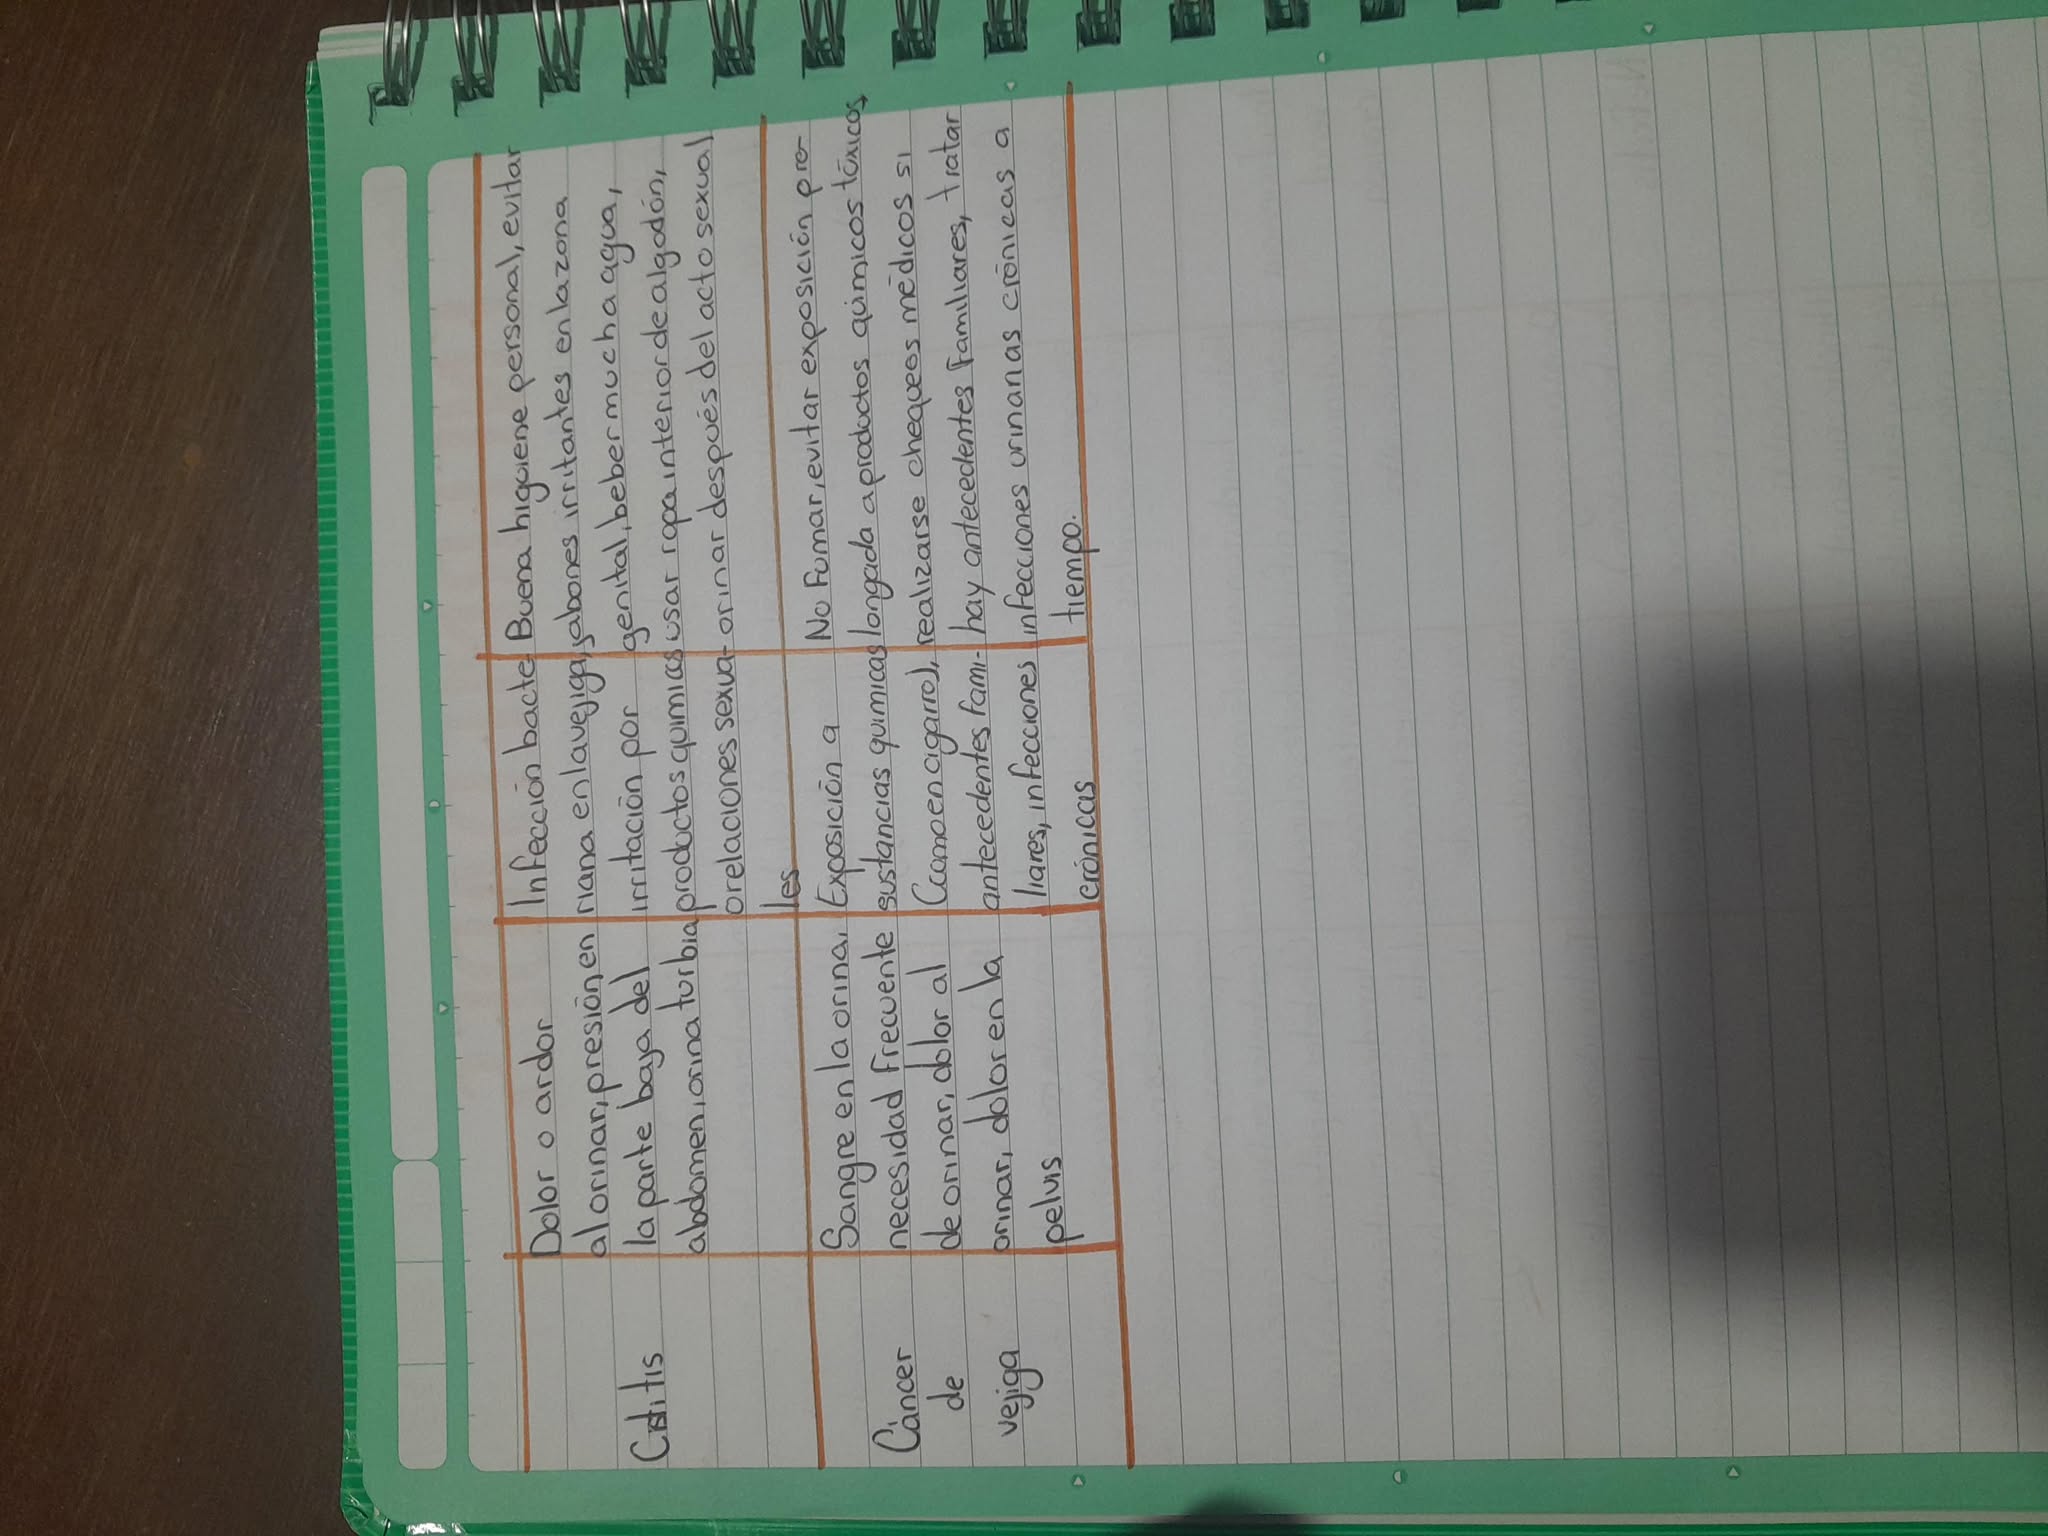 Cistitis
Dolor o ardor
al orinar, presión en
la parte baja del
abdomen, orina turbia
Infección bacte-
riana en la vejiga,
irritación por
productos quimicas
o relaciones sexua-
les
Buena higuiene personal, evitar
jabones irritantes en la zona
genital, beber mucha agua,
usar ropa interior de algodón,
orinar después del acto sexual
Cáncer
de
vejiga
Sangre en la orina,
necesidad Frecuente
de orinar, dolor al
orinar, dolor en la
pelvis
Exposición a
sustancias quimicas
(como en cigarro),
antecedentes fami-
liares, infecciones
crónicas
No Fumar, evitar exposición pro-
longada a productos químicos tóxicos,
realizarse chequeos médicos si
hay antecedentes Familiares, tratar
infecciones urinarias crónicas a
tiempo.